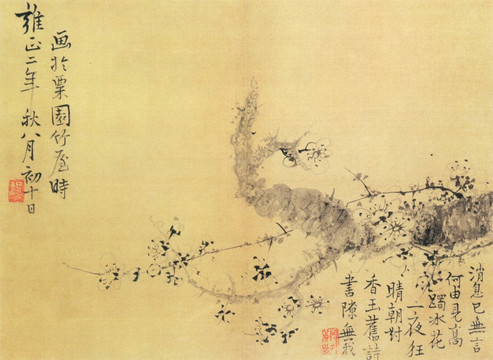 消息已無言
何由見高
躅冰花
一夜狂
晴朝對
香玉舊詩
書隙無我
画於粟園竹屋時
雍正二年秋八月初十日